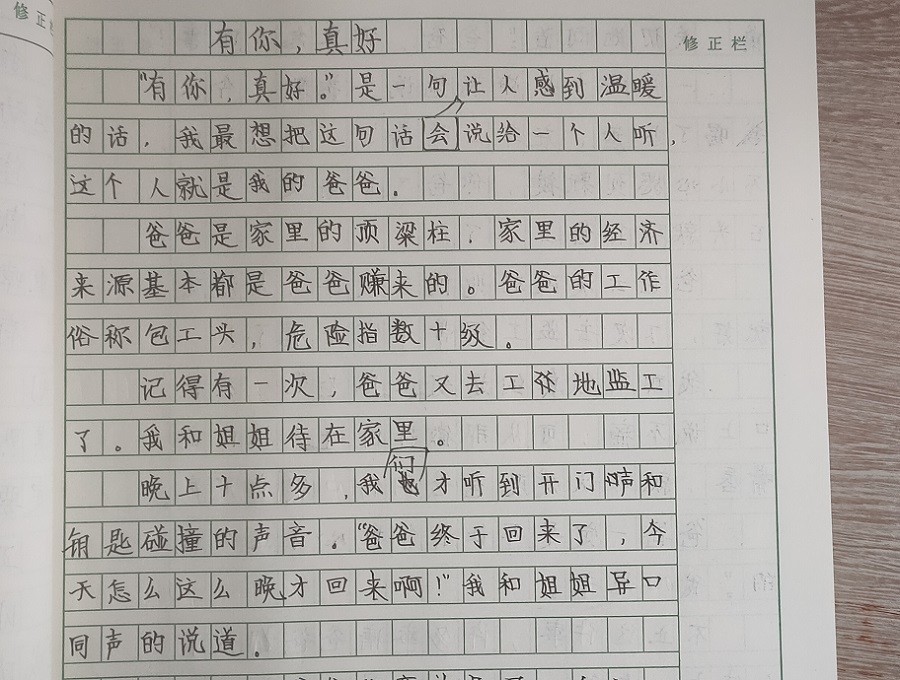 修正
有你，真好
修正栏
"有你，真好。"是一句让人感到温暖
的话，我最想把这句话会说给一个人听，
这个人就是我的爸爸。
爸爸是家里的顶梁柱，家里的经济
来源基本都是爸爸赚来的。爸爸的工作
俗称包工头，危险指数十级。
记得有一次，爸爸又去工地监工
了。我和姐姐待在家里。
晚上十点多，我们才听到开门声和
钥匙碰撞的声音。"爸爸终于回来了，今
天怎么这么晚才回来啊！"我和姐姐异口
同声的说道。